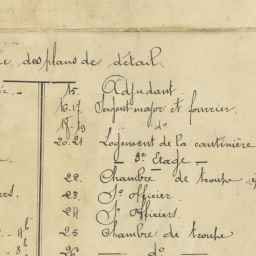 des plans de détail.
15. Adjudant
16.17 Sergent major et fourrier.
18.19 do
20.21 Logement de la cantinière
— 3e Etage —
22. Chambre de troupe
23. Ss officier
24. Ss officiers
25 Chambre de troupe
26 — do —